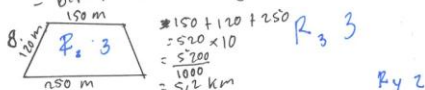 150 m
8. 120 m
R₂ 3
250 m
*150 + 120 + 250
= 520 × 10
= 5200
1000
= 5,2 km
R₃ 3
R4 2